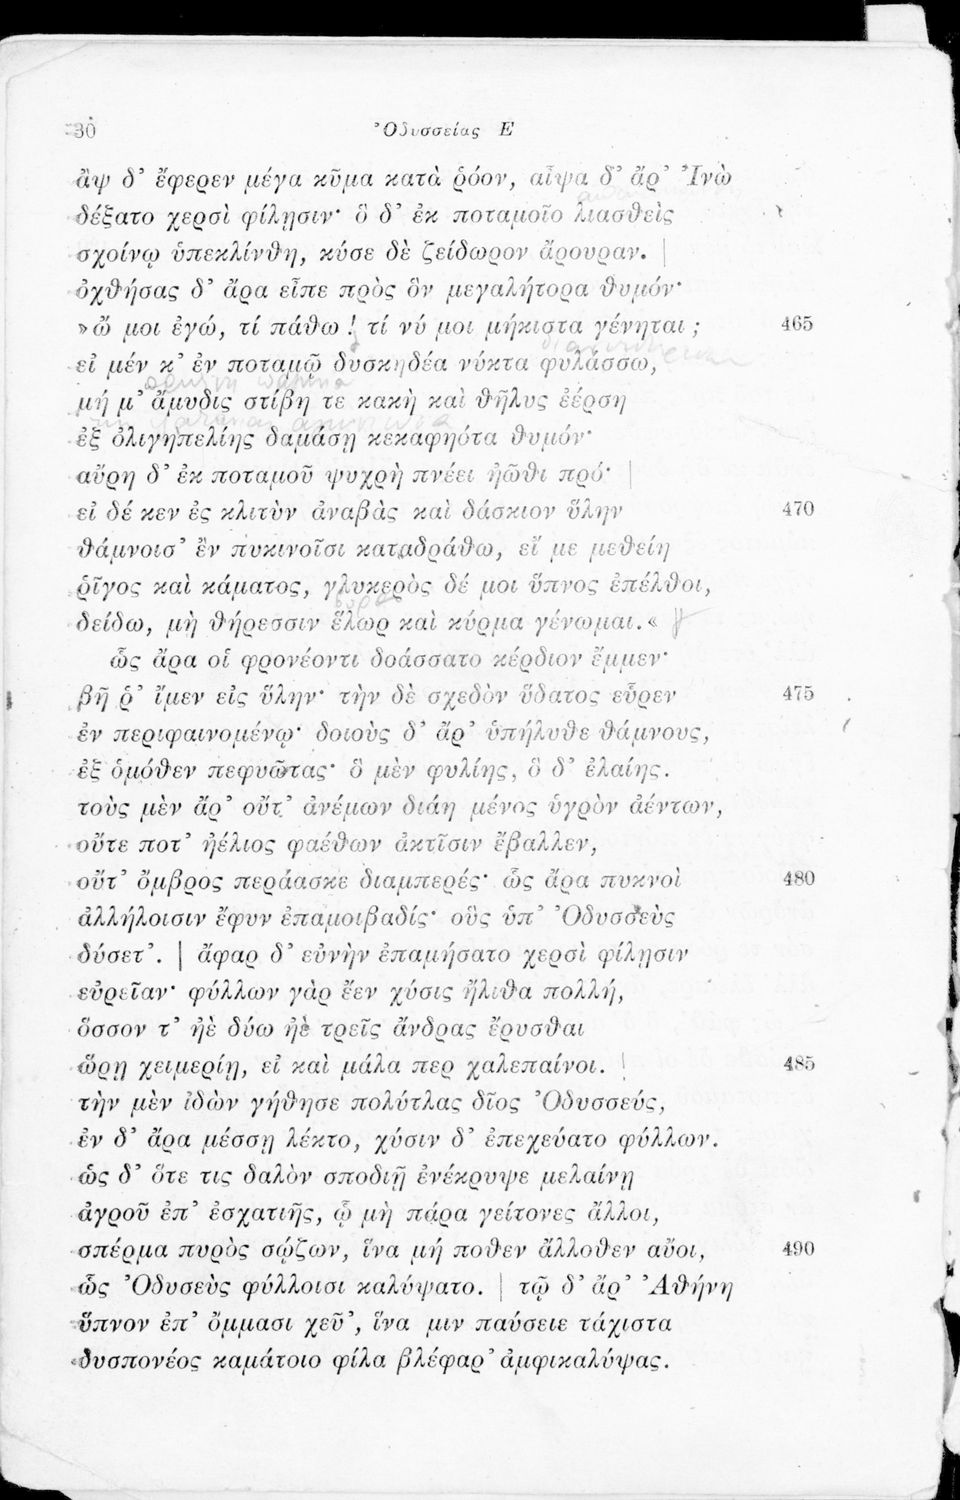 30 Ὀδυσσείας Ε
ἂψ δ’ ἔφερεν μέγα κῦμα κατὰ ῥόον, αἶψα δ’ ἄρ’ Ἰνὼ
δέξατο χερσὶ φίλῃσιν· ὃ δ’ ἐκ ποταμοῖο λιασθεὶς
σχοίνῳ ὑπεκλίνθη, κύσε δὲ ζείδωρον ἄρουραν. |
ὀχθήσας δ’ ἄρα εἶπε πρὸς ὃν μεγαλήτορα θυμόν·
»ὤ μοι ἐγώ, τί πάθω! τί νύ μοι μήκιστα γένηται; 465
εἰ μέν κ’ ἐν ποταμῷ δυσκηδέα νύκτα φυλάσσω,
μή μ’ ἄμυδις στίβη τε κακὴ καὶ θῆλυς ἐέρση
ἐξ ὀλιγηπελίης δαμάσῃ κεκαφηότα θυμόν·
αὔρη δ’ ἐκ ποταμοῦ ψυχρὴ πνέει ἠῶθι πρό· |
εἰ δέ κεν ἐς κλιτὺν ἀναβὰς καὶ δάσκιον ὕλην 470
θάμνοισ’ ἐν πυκινοῖσι καταδράθω, εἴ με μεθείη
ῥῖγος καὶ κάματος, γλυκερὸς δέ μοι ὕπνος ἐπέλθοι,
δείδω, μὴ θήρεσσιν ἕλωρ καὶ κύρμα γένωμαι.«
ὣς ἄρα οἱ φρονέοντι δοάσσατο κέρδιον ἔμμεν·
βῆ ῥ’ ἴμεν εἰς ὕλην· τὴν δὲ σχεδὸν ὕδατος εὗρεν 475
ἐν περιφαινομένῳ· δοιοὺς δ’ ἄρ’ ὑπήλυθε θάμνους,
ἐξ ὁμόθεν πεφυῶτας· ὃ μὲν φυλίης, ὃ δ’ ἐλαίης.
τοὺς μὲν ἄρ’ οὔτ’ ἀνέμων διάη μένος ὑγρὸν ἀέντων,
οὔτε ποτ’ ἠέλιος φαέθων ἀκτῖσιν ἔβαλλεν,
οὔτ’ ὄμβρος περάασκε διαμπερές· ὣς ἄρα πυκνοὶ 480
ἀλλήλοισιν ἔφυν ἐπαμοιβαδίς· οὓς ὑπ’ Ὀδυσσεὺς
δύσετ’. | ἄφαρ δ’ εὐνὴν ἐπαμήσατο χερσὶ φίλῃσιν
εὐρεῖαν· φύλλων γὰρ ἔεν χύσις ἤλιθα πολλή,
ὅσσον τ’ ἠὲ δύω ἠὲ τρεῖς ἄνδρας ἔρυσθαι
ὥρῃ χειμερίῃ, εἰ καὶ μάλα περ χαλεπαίνοι. | 485
τὴν μὲν ἰδὼν γήθησε πολύτλας δῖος Ὀδυσσεύς,
ἐν δ’ ἄρα μέσσῃ λέκτο, χύσιν δ’ ἐπεχεύατο φύλλων.
ὡς δ’ ὅτε τις δαλὸν σποδιῇ ἐνέκρυψε μελαίνῃ
ἀγροῦ ἐπ’ ἐσχατιῆς, ᾧ μὴ πάρα γείτονες ἄλλοι,
σπέρμα πυρὸς σῴζων, ἵνα μή ποθεν ἄλλοθεν αὔοι, 490
ὣς Ὀδυσεὺς φύλλοισι καλύψατο. | τῷ δ’ ἄρ’ Ἀθήνη
ὕπνον ἐπ’ ὄμμασι χεῦ’, ἵνα μιν παύσειε τάχιστα
δυσπονέος καμάτοιο φίλα βλέφαρ’ ἀμφικαλύψας.